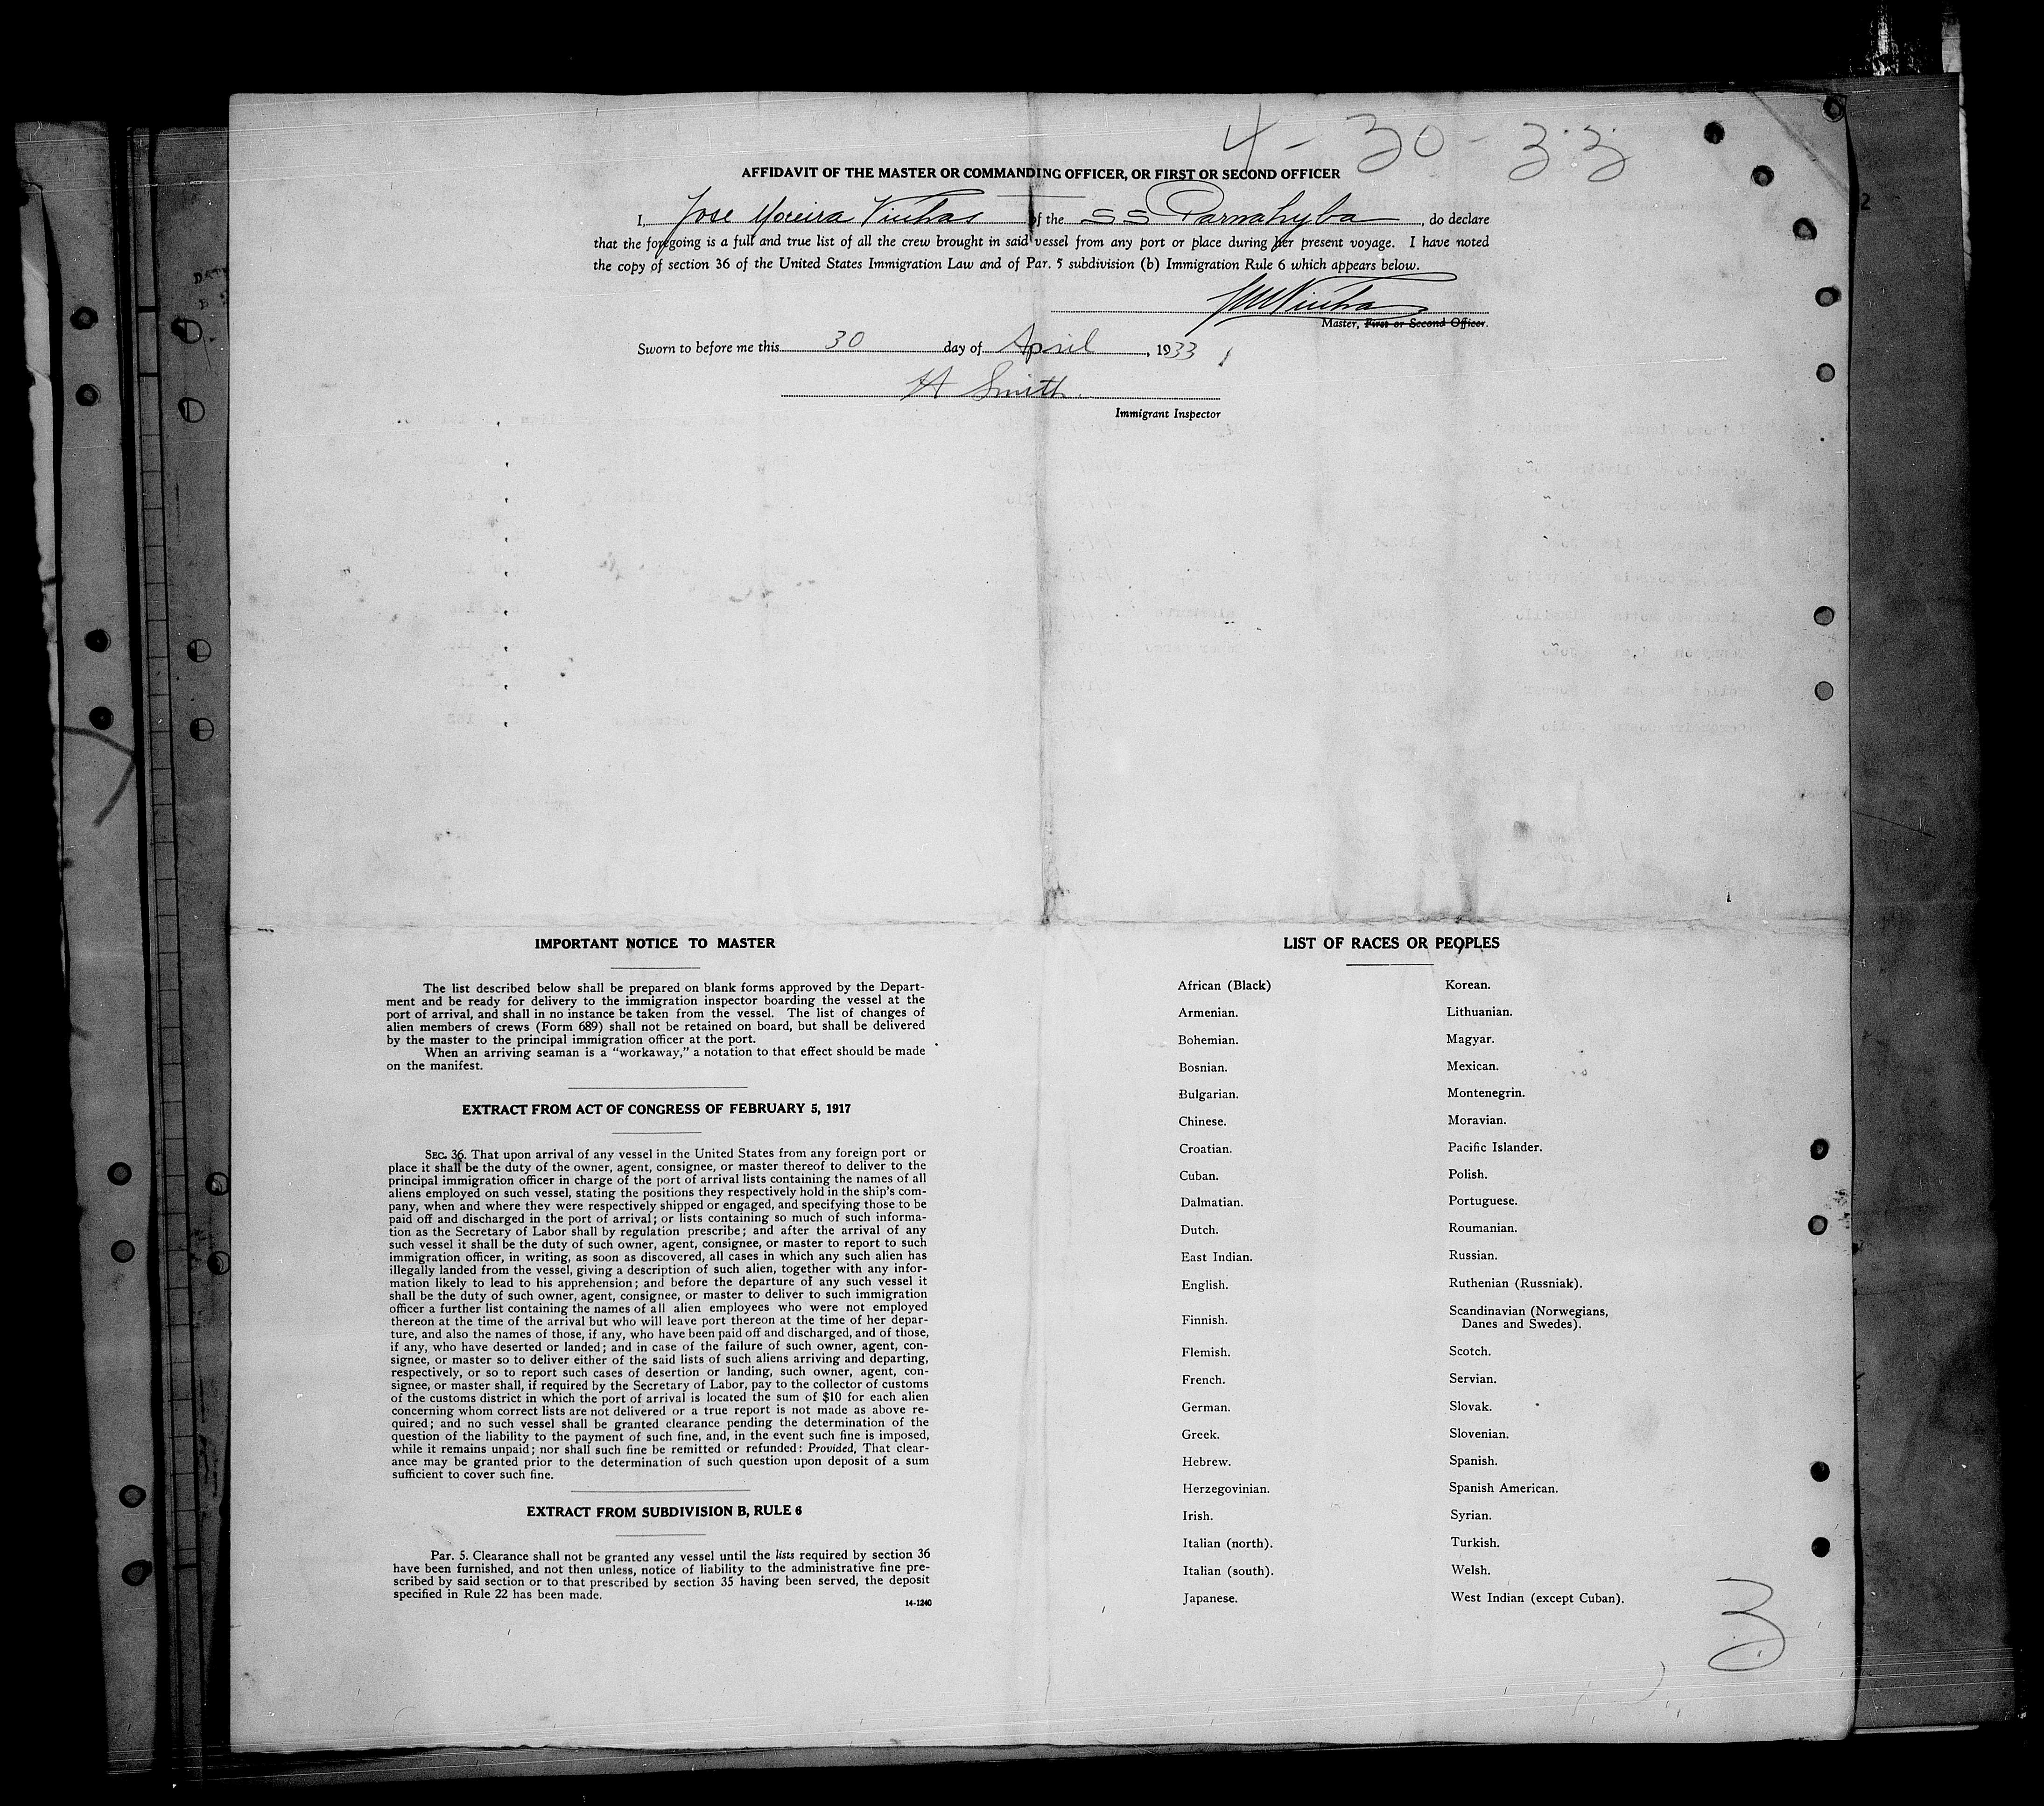 4-30-33
AFFIDAVIT OF THE MASTER OR COMMANDING OFFICER, OR FIRST OR SECOND OFFICER
I, Jose Moreira Vinhas of the SS Parnahyba, do declare
that the foregoing is a full and true list of all the crew brought in said vessel from any port or place during her present voyage. I have noted
the copy of section 36 of the United States Immigration Law and of Par. 5 subdivision (b) Immigration Rule 6 which appears below.
JMVinhas
Master, First or Second Officer.
Sworn to before me this 30 day of April, 1933
H Smith
Immigrant Inspector
IMPORTANT NOTICE TO MASTER
The list described below shall be prepared on blank forms approved by the Depart-
ment and be ready for delivery to the immigration inspector boarding the vessel at the
port of arrival, and shall in no instance be taken from the vessel. The list of changes of
alien members of crews (Form 689) shall not be retained on board, but shall be delivered
by the master to the principal immigration officer at the port.
When an arriving seaman is a “workaway,” a notation to that effect should be made
on the manifest.
EXTRACT FROM ACT OF CONGRESS OF FEBRUARY 5, 1917
SEC. 36. That upon arrival of any vessel in the United States from any foreign port or
place it shall be the duty of the owner, agent, consignee, or master thereof to deliver to the
principal immigration officer in charge of the port of arrival lists containing the names of all
aliens employed on such vessel, stating the positions they respectively hold in the ship's com-
pany, when and where they were respectively shipped or engaged, and specifying those to be
paid off and discharged in the port of arrival; or lists containing so much of such informa-
tion as the Secretary of Labor shall by regulation prescribe; and after the arrival of any
such vessel it shall be the duty of such owner, agent, consignee, or master to report to such
immigration officer, in writing, as soon as discovered, all cases in which any such alien has
illegally landed from the vessel, giving a description of such alien, together with any infor-
mation likely to lead to his apprehension; and before the departure of any such vessel it
shall be the duty of such owner, agent, consignee, or master to deliver to such immigration
officer a further list containing the names of all alien employees who were not employed
thereon at the time of the arrival but who will leave port thereon at the time of her depar-
ture, and also the names of those, if any, who have been paid off and discharged, and of those,
if any, who have deserted or landed; and in case of the failure of such owner, agent, con-
signee, or master so to deliver either of the said lists of such aliens arriving and departing,
respectively, or so to report such cases of desertion or landing, such owner, agent, con-
signee, or master shall, if required by the Secretary of Labor, pay to the collector of customs
of the customs district in which the port of arrival is located the sum of $10 for each alien
concerning whom correct lists are not delivered or a true report is not made as above re-
quired; and no such vessel shall be granted clearance pending the determination of the
question of the liability to the payment of such fine, and, in the event such fine is imposed,
while it remains unpaid; nor shall such fine be remitted or refunded: Provided, That clear-
ance may be granted prior to the determination of such question upon deposit of a sum
sufficient to cover such fine.
EXTRACT FROM SUBDIVISION B, RULE 6
Par. 5. Clearance shall not be granted any vessel until the lists required by section 36
have been furnished, and not then unless, notice of liability to the administrative fine pre-
scribed by said section or to that prescribed by section 35 having been served, the deposit
specified in Rule 22 has been made.
14-1240
LIST OF RACES OR PEOPLES
African (Black)
Armenian.
Bohemian.
Bosnian.
Bulgarian.
Chinese.
Croatian.
Cuban.
Dalmatian.
Dutch.
East Indian.
English.
Finnish.
Flemish.
French.
German.
Greek.
Hebrew.
Herzegovinian.
Irish.
Italian (north).
Italian (south).
Japanese.
Korean.
Lithuanian.
Magyar.
Mexican.
Montenegrin.
Moravian.
Pacific Islander.
Polish.
Portuguese.
Roumanian.
Russian.
Ruthenian (Russniak).
Scandinavian (Norwegians,
Danes and Swedes).
Scotch.
Servian.
Slovak.
Slovenian.
Spanish.
Spanish American.
Syrian.
Turkish.
Welsh.
West Indian (except Cuban).
3